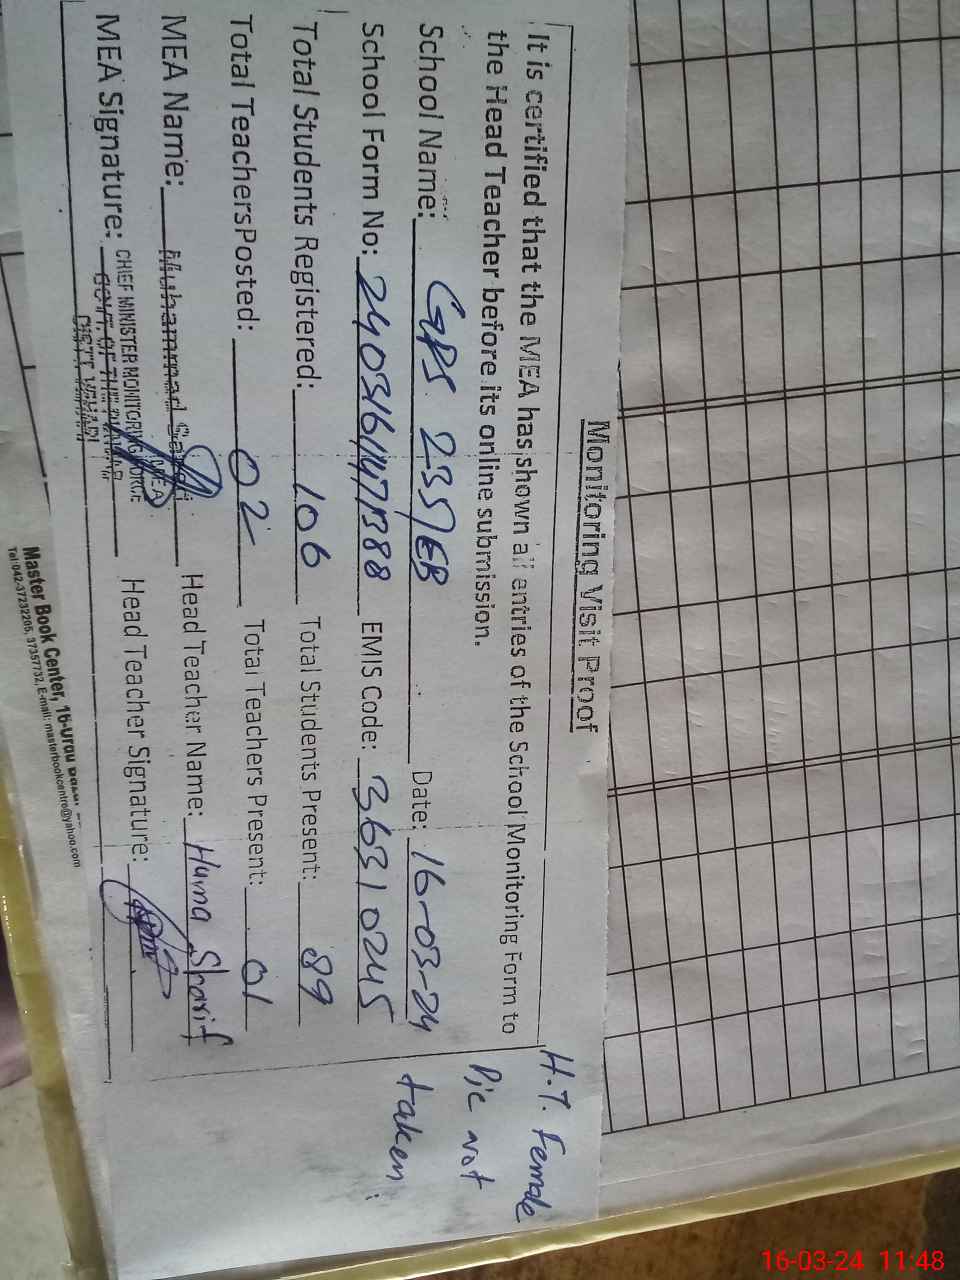 Monitoring Visit Proof
It is certified that the MEA has shown all entries of the School Monitoring Form to
the Head Teacher before its online submission.
School Name: GPS 235/EB Date: 16-03-24
School Form No: EMIS Code: 36310245
Total Students Registered: 106 Total Students Present: 89
Total TeachersPosted: 02 Total Teachers Present: 01
MEA Name: Muhammad Head Teacher Name: Huma Sharif
MEA Signature: Head Teacher Signature:
(MEA)
CHIEF MINISTER MONITORING FORCE
GOVT. OF THE PUNJAB
DISTT. VEHARI
H.T. Female
Pic not
taken
Master Book Center, 16-Urdu
Tel:042-37232205, 37357732, E-mail: masterbookcentre@yahoo.com
16-03-24 11:48